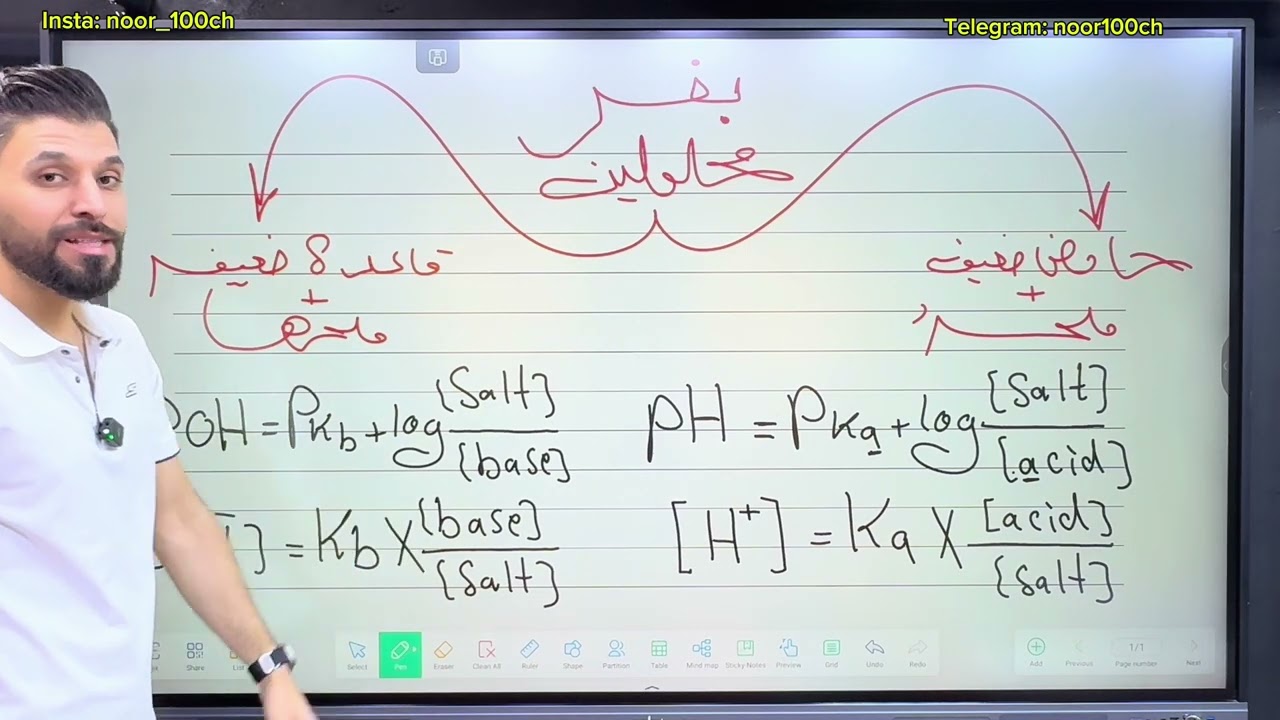 Insta: noor_100ch
Telegram: noor100ch
بفر
محلولين
حامض ضعيف
+
ملحه
قاعدة ضعيفه
+
ملحها
pH = PKa + log [Salt] / [acid]
[H+] = Ka X [acid] / [Salt]
POH = PKb + log [Salt] / [base]
] = Kb X [base] / [Salt]
Share
Select
Pen
Eraser
Clean All
Ruler
Shape
Partition
Table
Mind map
Sticky Notes
Preview
Grid
Undo
Redo
Add
Previous
1/1
Page number
Next